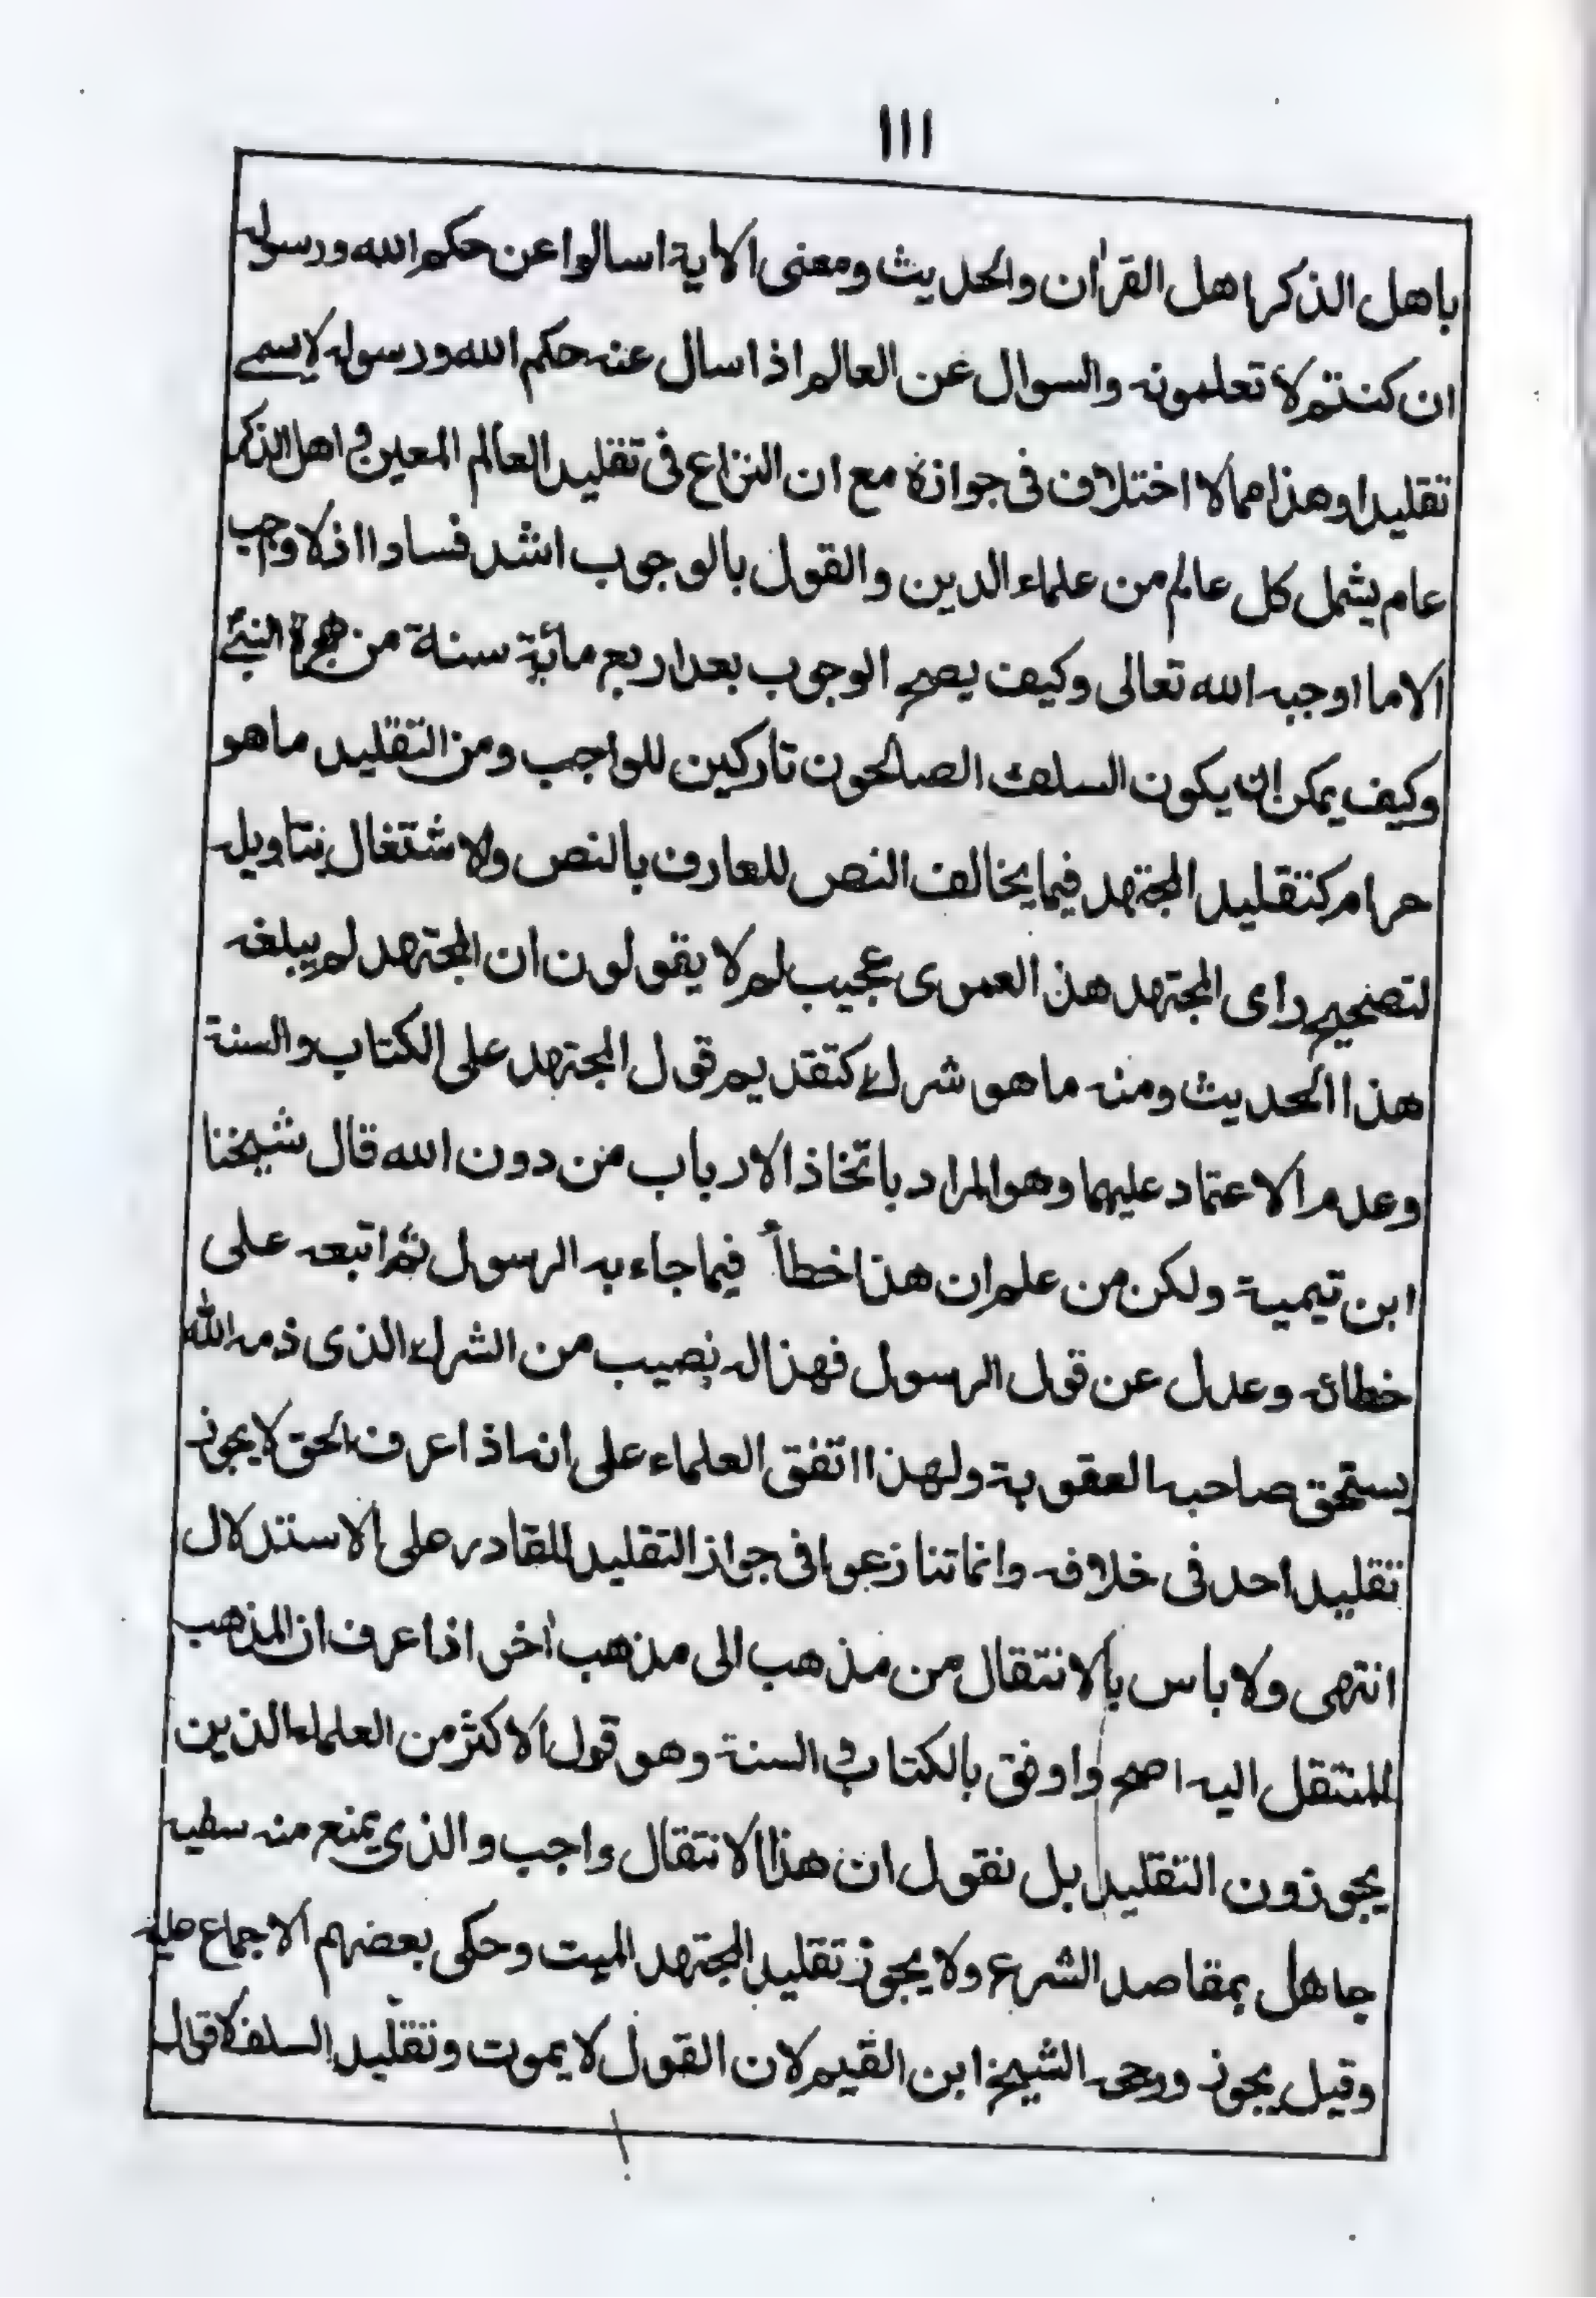 ١١١
باهل الذكر اهل القرآن والحديث ومعنى الاية اسالوا عن حكم الله ورسوله
ان كنتم لا تعلمونه والسوال عن العالم اذا سال عنه حكم الله ورسوله لا يسمى
تقليدا وهذا مما لا اختلاف فى جوازه مع ان النزاع فى تقليد العالم المعين و اهل الذكر
عام يشمل كل عالم من علماء الدين والقول بالوجوب اشد فسادا اذ لا وجب
الا ما اوجبه الله تعالى وكيف يصح الوجوب بعد اربع مائة سنة من هجرة النبى
وكيف يمكن ان يكون السلف الصالحون تاركين للواجب ومن التقليد ما هو
حرام كتقليد المجتهد فيما يخالف النص للعارف بالنص والاشتغال بتاويله
لتصحيح راى المجتهد هذا لعمرى عجيب لم لا يقولون ان المجتهد لم يبلغه
هذا الحديث ومنه ما هو شرك كتقديم قول المجتهد على الكتاب والسنة
وعدم الاعتماد عليهما وهو المراد باتخاذ الارباب من دون الله قال شيخنا
ابن تيمية ولكن من علم ان هذا خطأ فيما جاء به الرسول ثم اتبعه على
خطائه وعدل عن قول الرسول فهذا له نصيب من الشرك الذى ذمه الله
يستحق صاحبه العقوبة ولهذا اتفق العلماء على انه اذا عرف الحق لا يجوز
تقليد احد فى خلافه وانما تنازعوا فى جواز التقليد للقادر على الاستدلال
انتهى ولا باس بالانتقال من مذهب الى مذهب اٰخر اذا عرف ان المذهب
للنتقل اليه اصح واوفق بالكتاب و السنة وهو قول الاكثر من العلماء الذين
يجوزون التقليد بل نقول ان هذا الانتقال واجب والذى يمنع منه سفيه
جاهل بمقاصد الشرع ولا يجوز تقليد المجتهد الميت وحكى بعضهم الاجماع عليه
وقيل يجوز ورجحه الشيخ ابن القيم لان القول لا يموت وتقليد السلف لاقوال